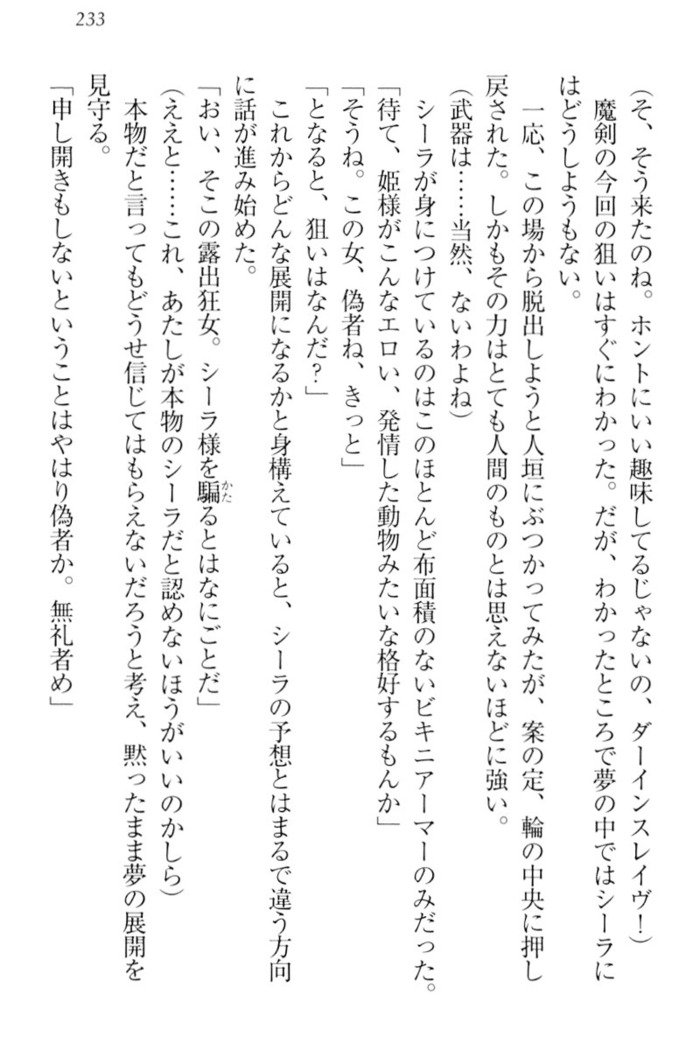 233
(そ、そう来たのね。ホントにいい趣味してるじゃないの、ダーインスレイヴ!)
魔剣の今回の狙いはすぐにわかった。だが、わかったところで夢の中ではシーラに
はどうしようもない。
一応、この場から脱出しようと人垣にぶつかってみたが、案の定、輪の中央に押し
戻された。しかもその力はとても人間のものとは思えないほどに強い。
(武器は……当然、ないわよね)
シーラが身につけているのはこのほとんど布面積のないビキニアーマーのみだった。
「待て、姫様がこんなエロい、発情した動物みたいな格好するもんか」
「そうね。この女、偽者ね、きっと」
「となると、狙いはなんだ?」
これからどんな展開になるかと身構えていると、シーラの予想とはまるで違う方向
に話が進み始めた。
「おい、そこの露出狂女。シーラ様を騙るとはなにごとだ」
かた
(ええと……これ、あたしが本物のシーラだと認めないほうがいいのかしら)
本物だと言ってもどうせ信じてはもらえないだろうと考え、黙ったまま夢の展開を
見守る。
「申し開きもしないということはやはり偽者か。無礼者め」